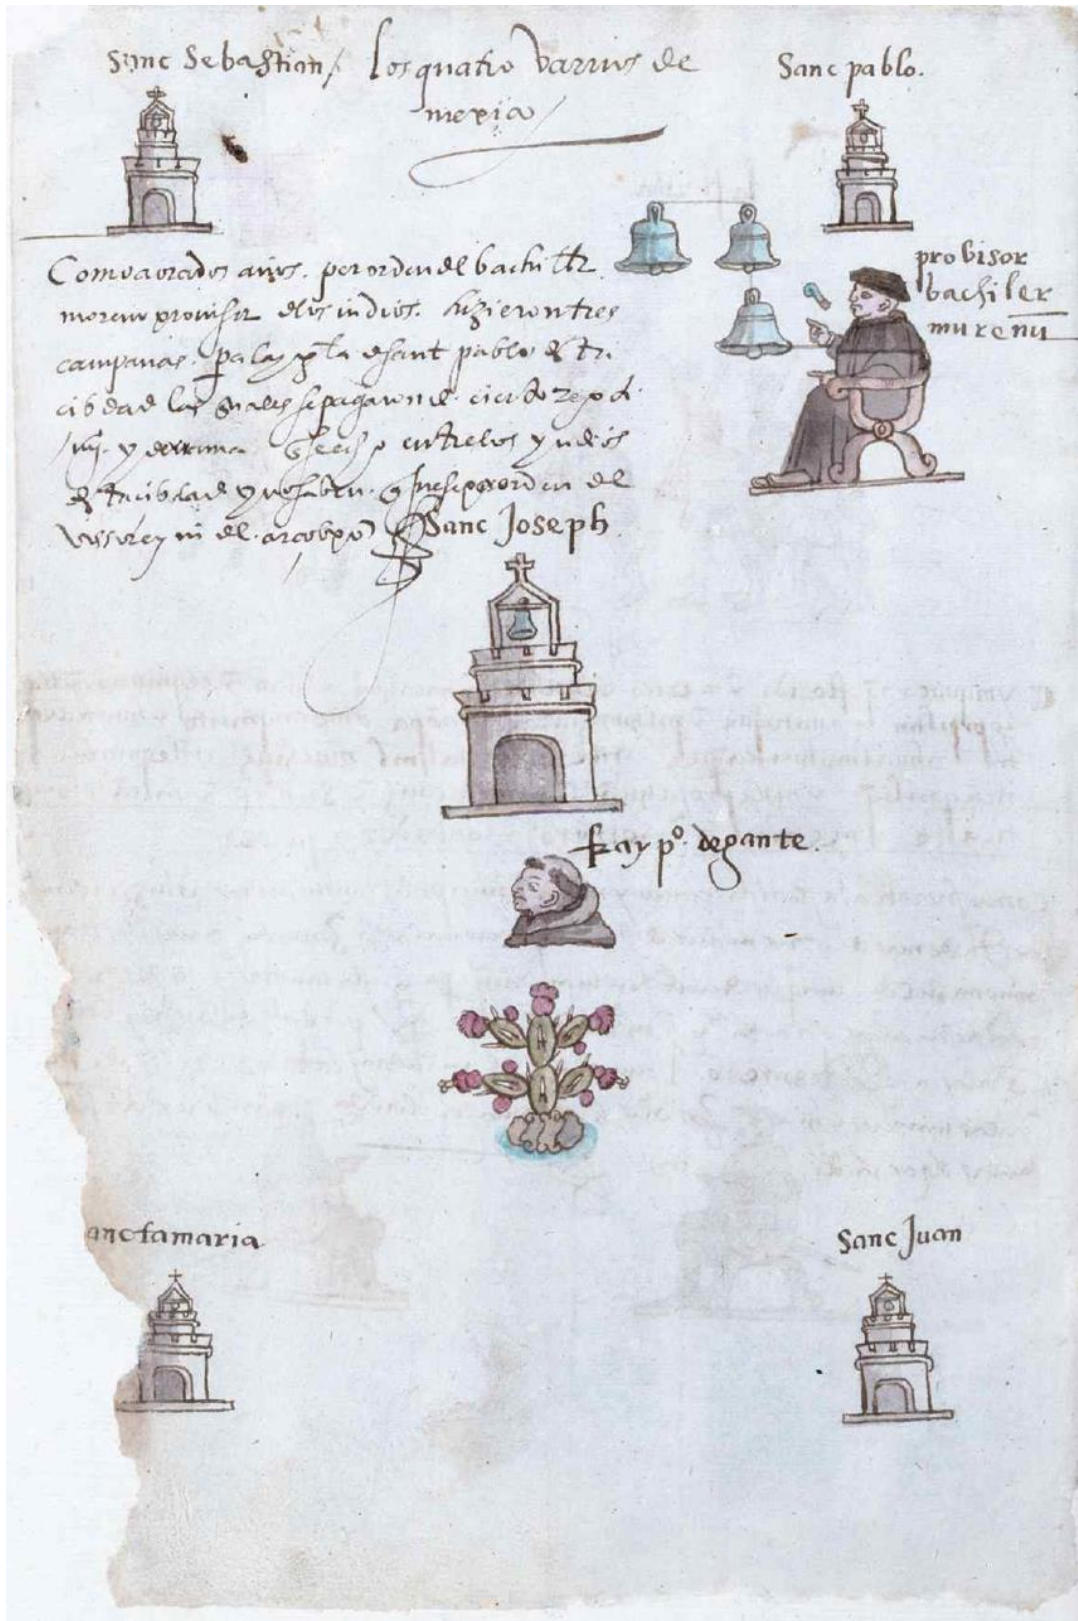 Sanc Sebastian / los quatro varrios de
mexico
Sanc pablo.
provisor
bachiler
murenu
Como avra dos años. por orden del bachiller
moreno provisor de los indios. hizieron tres
campanas. pa la de sant pablo
cibdad las quales se pagaron de cierto
y derrama entre los yndios
cibdad y no saben por orden del
visorrey ni del arcobpo
Sanc Joseph.
fray pº. degante.
anctamaria
Sanc Juan